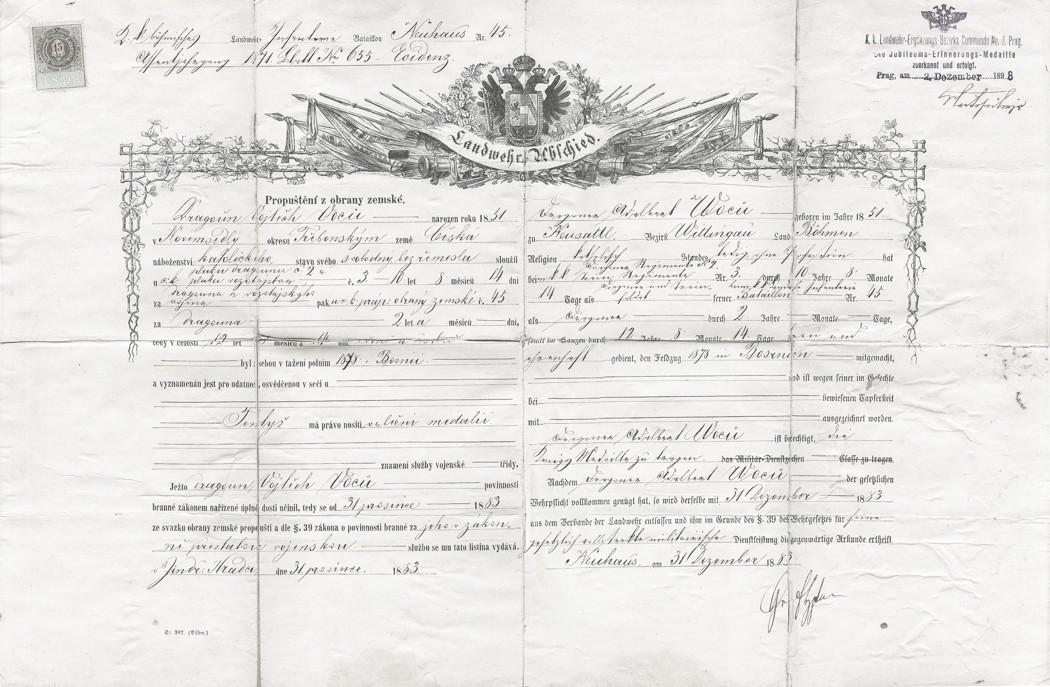 K. k. böhmisches Landwehr- Infanterie Bataillon Neuhaus Nr. 45.
1871 Blatt No 655
15
K. k. Landwehr-Ergänzungs-Bezirks-Commando No. 2. Prag.
Die Jubiläums-Erinnerungs-Medaille
zuerkannt und erfolgt.
Prag, am 2. Dezember 1898
Landwehr-Abschied.
Propuštění z obrany zemské.
Dragoun Vojtěch Voců narozen roku 1851
v okresu Třeboňským země Česká
náboženství katolického stavu svého svobodný bez řemesla sloužil
u c. k. pluku dragounů č. 2 a
č. 3 10 let 8 měsíců 14 dní
za pak u c. k. praj. obrany zemské č. 45
za dragouna 2 leta měsíců dní,
tedy v celosti 12 let 8 měsíců a 14 dní
byl sebou v tažení polním 1878 v Bosnu.
a vyznamenán jest pro udatnost, osvědčenou v seči u
Tentýž má právo nositi válečni medalii
znamení služby vojenské třídy.
Ježto dragoun Vojtěch Voců povinnosti
branné zákonem nařízené úplně dosti učinil, tedy se od 31 prosince 1883
ze svazku obrany zemské propouští a dle §. 39 zákona o povinnosti branné za jeho v zákon-
ní vojenskou službu se mu tato listina vydává.
v Jindř. Hradci dne 31 prosince. 1883
Dragoner Adalbert Woců geboren im Jahre 1851
zu Neusattl Bezirk Wittingau Land Böhmen
Religion katholisch Standes ledig ohne Profession hat
beim k. k. Dragoner Regimente N. 2.
Regimente Nr. 3. durch 10 Jahre 8 Monate
14 Tage als ferner Bataillon Nr. 45
als Dragoner durch 2 Jahre Monate Tage,
somit im Ganzen durch 12 Jahre 8 Monate 14 Tage treu und
ehrenhaft gedient, den Feldzug 1878 in Bosnien mitgemacht,
und ist wegen seiner im Gefechte
bei bewiesenen Tapferkeit
mit ausgezeichnet worden.
Dragoner Adalbert Woců ist berechtigt, die
Kriegs Medaille zu tragen. das Militär-Dienstzeichen Classe zu tragen.
Nachdem Dragoner Adalbert Woců der gesetzlichen
Wehrpflicht vollkommen genügt hat, so wird derselbe mit 31 Dezember 1883
aus dem Verbande der Landwehr entlassen und ihm im Grunde des §. 39 des Wehrgesetzes für seine
gesetzlich vollstreckte militärische Dienstleistung die gegenwärtige Urkunde ertheilt.
Neuhaus, am 31 Dezember 1883